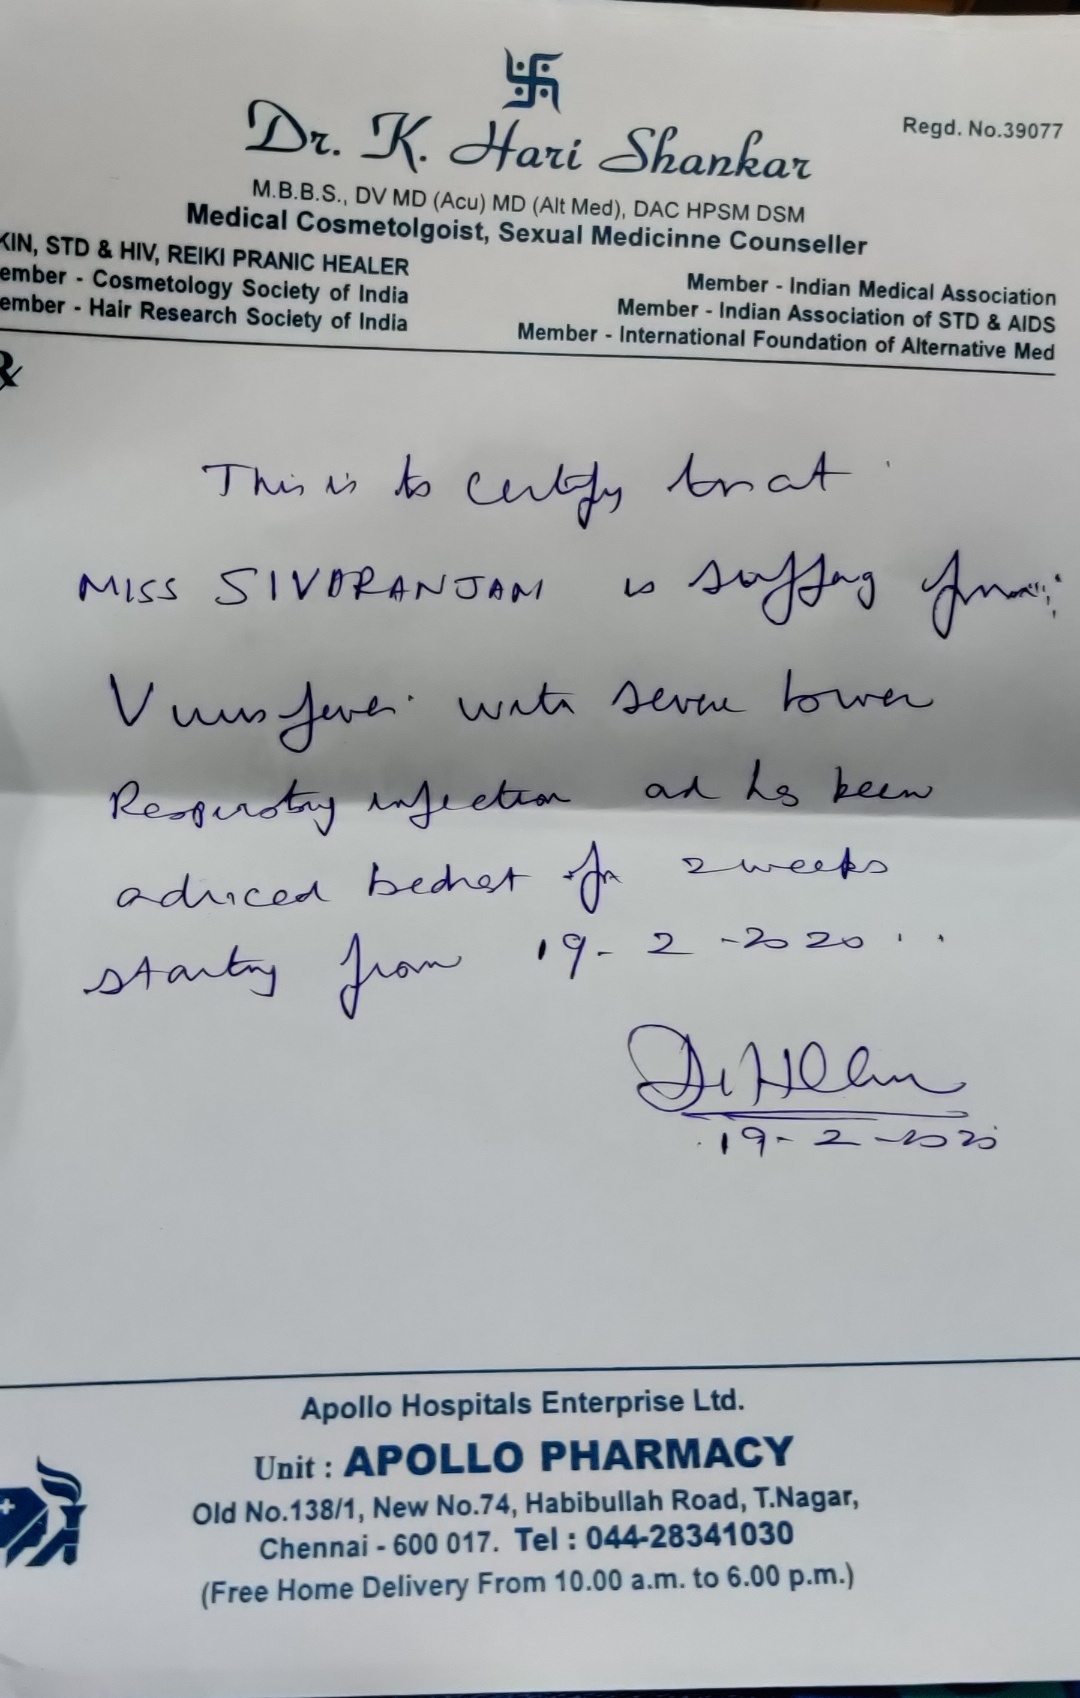 Dr. K. Hari Shankar
Regd. No.39077
M.B.B.S., DV MD (Acu) MD (Alt Med), DAC HPSM DSM
Medical Cosmetolgoist, Sexual Medicinne Counseller
KIN, STD & HIV, REIKI PRANIC HEALER
ember - Cosmetology Society of India
ember - Hair Research Society of India
Member - Indian Medical Association
Member - Indian Association of STD & AIDS
Member - International Foundation of Alternative Med
℞
This is to certify that
MISS SIVORANJANI is suffering from
Virus fever with severe lower
Respiratory infection and has been
adviced bedrest for 2 weeks
starting from 19-2-2020
19-2-2020
Apollo Hospitals Enterprise Ltd.
Unit : APOLLO PHARMACY
Old No.138/1, New No.74, Habibullah Road, T.Nagar,
Chennai - 600 017. Tel : 044-28341030
(Free Home Delivery From 10.00 a.m. to 6.00 p.m.)